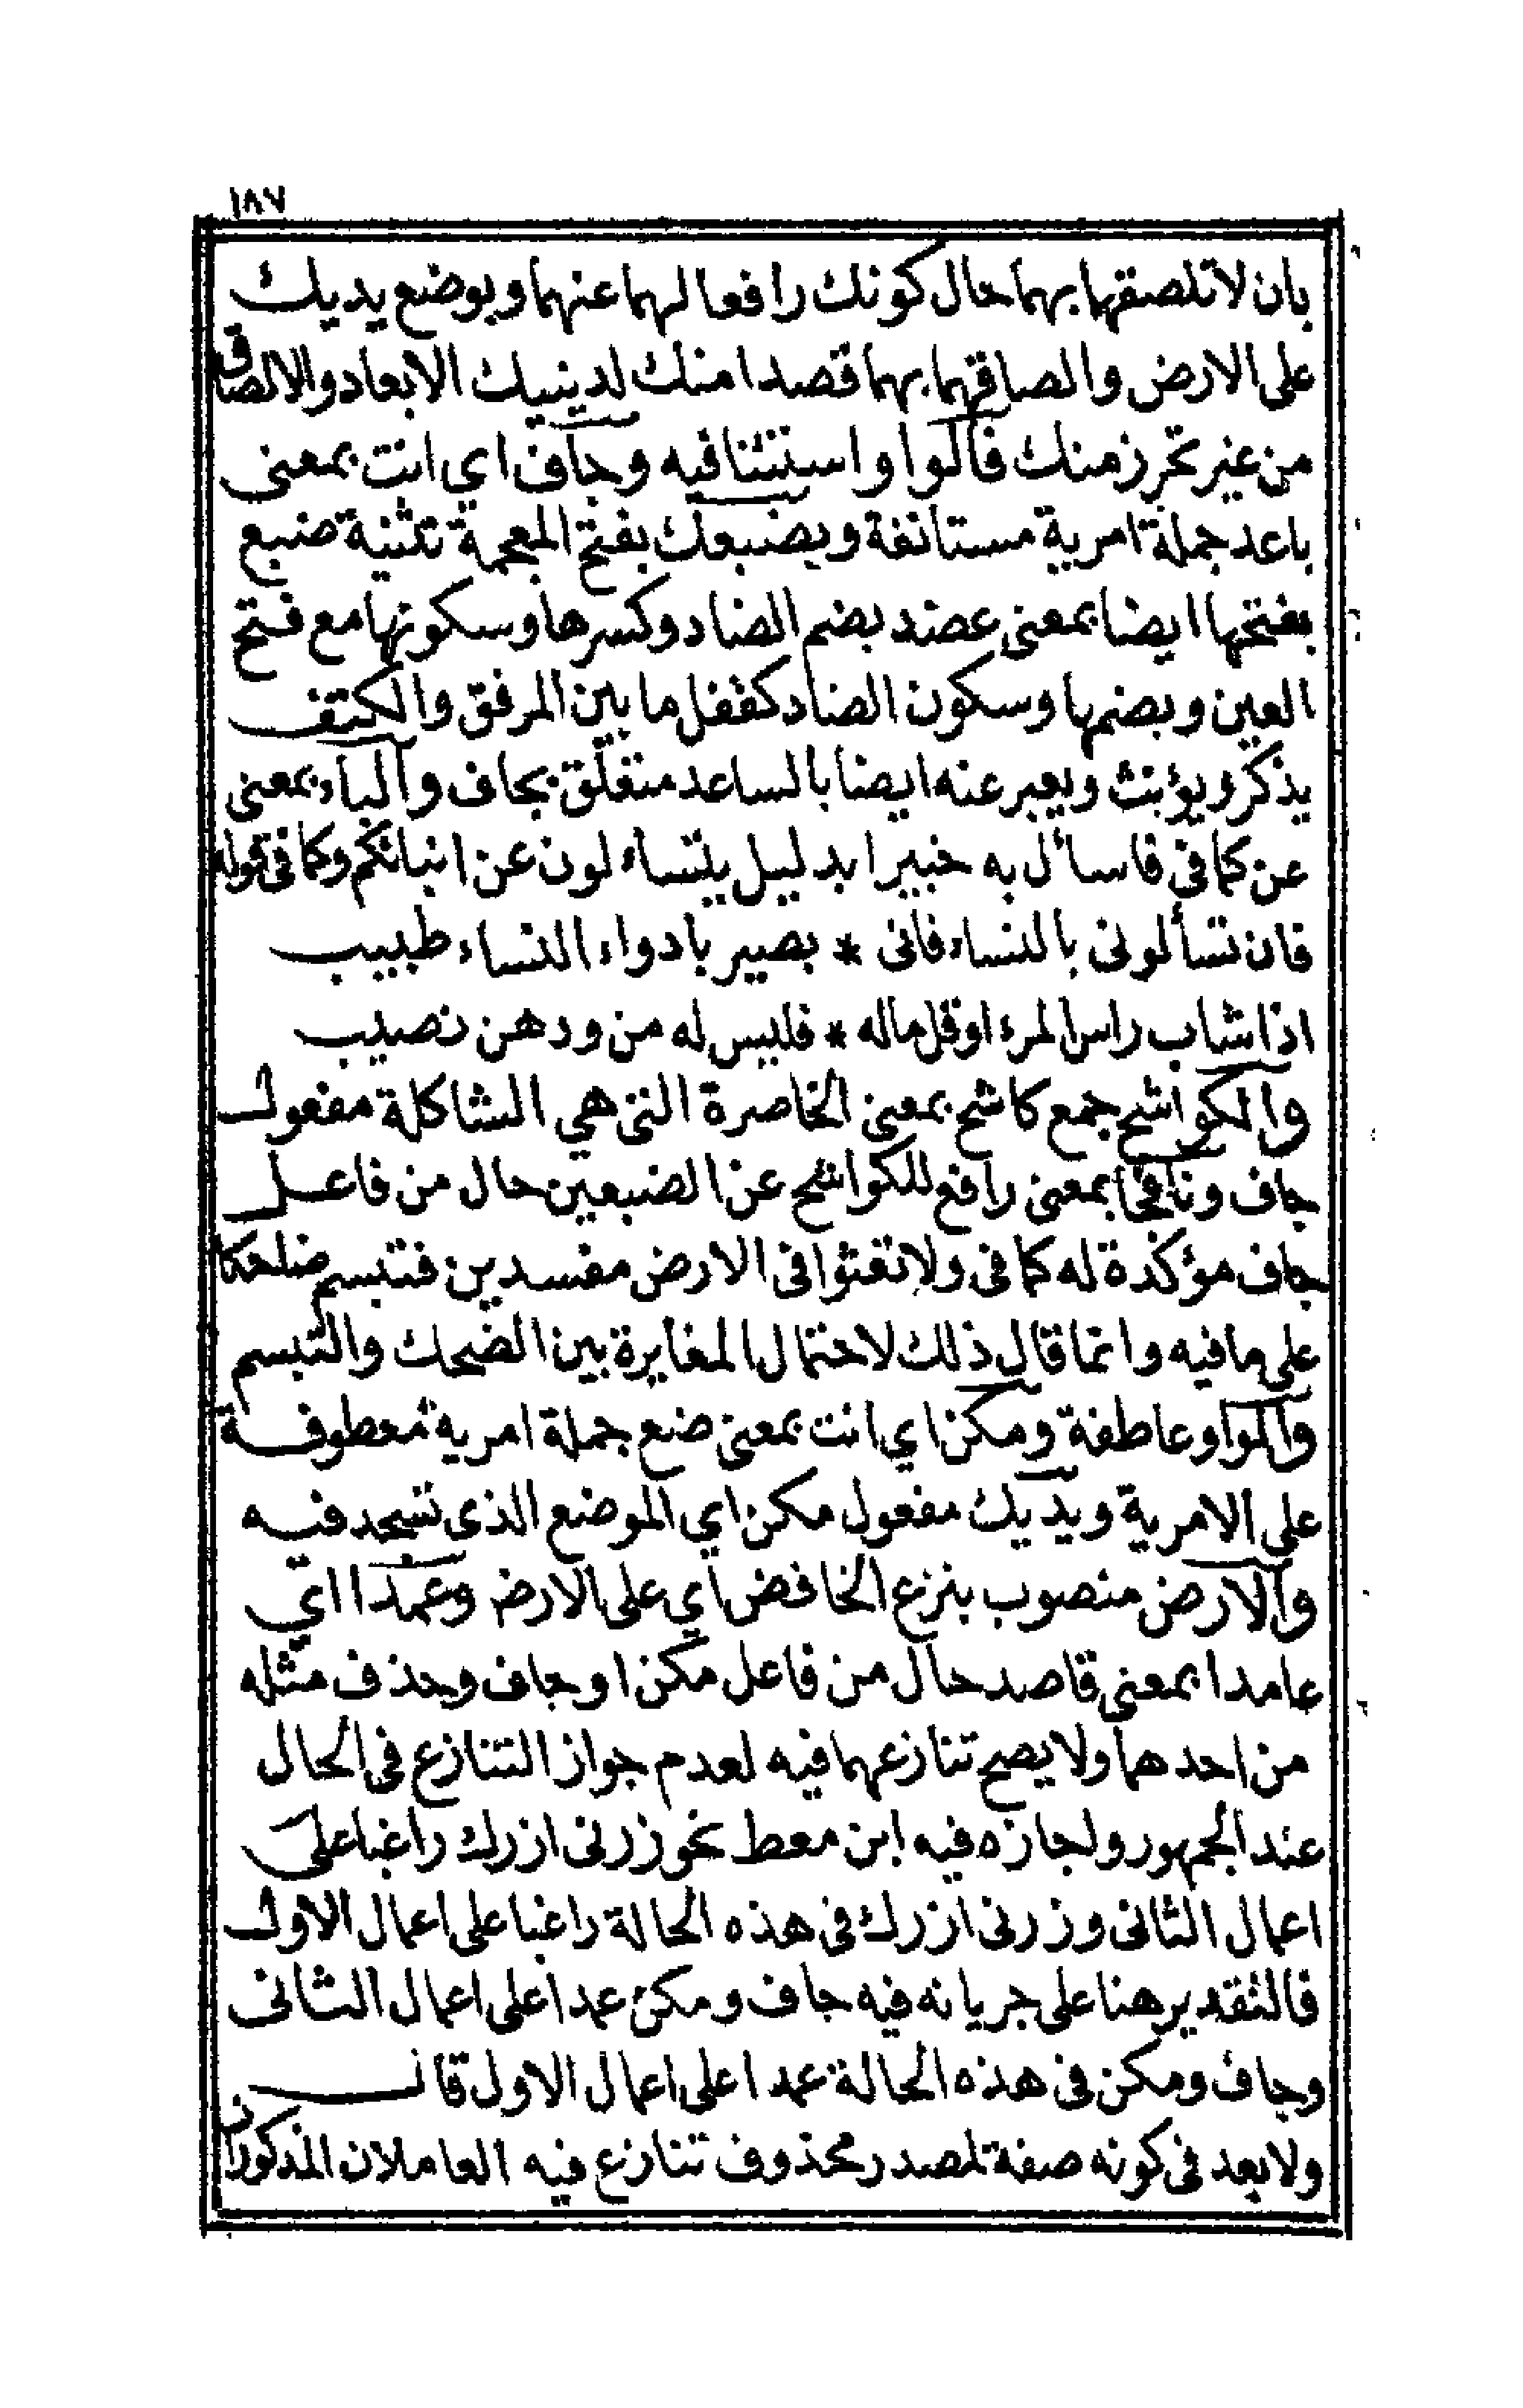 ١٨٧
بان لا تلصقهما بهما حال كونك رافعا لهما عنهما وبوضع يديك
على الارض والصاقهما بهما قصدا منك لدينيك الابعاد والالصاق
من غير تحرز منك فالواو استئنافيه وجاف اي انت بمعنى
باعد جملة امرية مستانفة وبضبعك بفتح المعجمة تثنية ضبع
بفتحها ايضا بمعنى عضد بضم الضاد وكسرها وسكونها مع فتح
العين وبضمها وسكون الضاد كقفل ما بين المرفق والكتف
يذكر ويؤنث ويعبر عنه ايضا بالساعد متعلق بجاف والباء بمعنى
عن كما في فاسأل به خبيرا بدليل يتساءلون عن انبائكم وكما في قوله
فان تسألونى بالنساء فانى * بصير بادواء النساء طبيب
اذا شاب راس المرء او قل ماله * فليس له من ودهن نصيب
والكواشح جمع كاشح بمعنى الخاصرة التى هي الشاكلة مفعول
جاف ونافجا بمعنى رافع للكواشح عن الضبعين حال من فاعل
جاف مؤكدة له كما فى ولا تعثوا فى الارض مفسدين فتبسم ضاحكا
على ما فيه وانما قال ذلك لاحتمال المغايرة بين الضحك والتبسم
والواو عاطفة ومكن اي انت بمعنى ضع جملة امرية معطوفة
على الامرية ويديك مفعول مكن اي الموضع الذى تسجد فيه
والارض منصوب بنزع الخافض اي على الارض وعمدا اي
عامدا بمعنى قاصد حال من فاعل مكن او جاف وحذف مثله
من احدهما ولا يصح تنازعهما فيه لعدم جواز التنازع فى الحال
عند الجمهور واجازه فيه ابن معط نحو زرنى ازرك راغبا على
اعمال الثانى وزرنى ازرك فى هذه الحالة راغبا على اعمال الاول
فالتقدير هنا على جريانه فيه جاف ومكن عمدا على اعمال الثانى
وجاف ومكن فى هذه الحالة عمدا على اعمال الاول قال
ولا بعد فى كونه صفة لمصدر محذوف تنازع فيه العاملان المذكوران